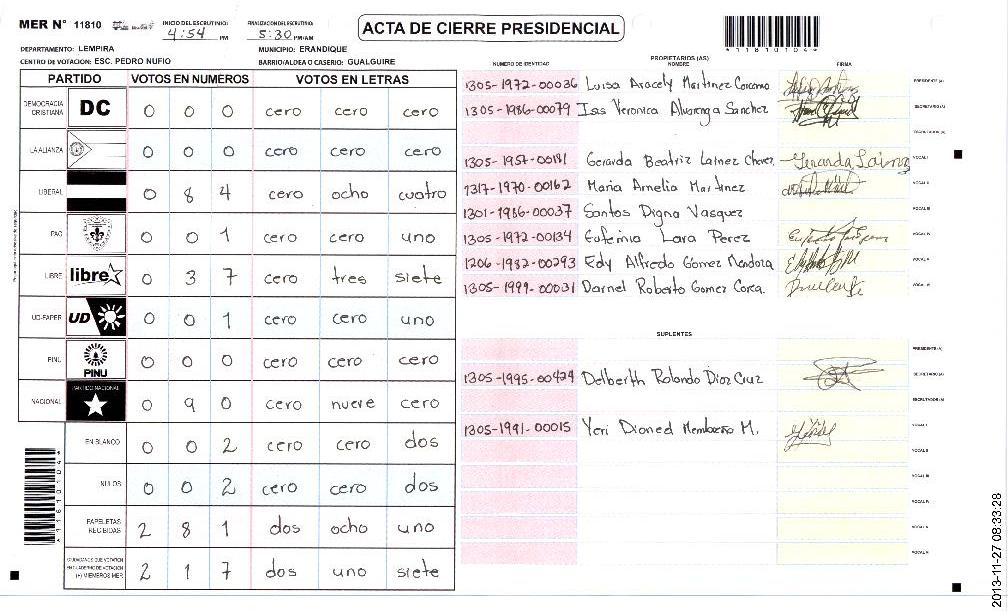 MER N° 11810
INICIO DEL ESCRUTINIO: 4:54 PM
FINALIZACION DEL ESCRUTINIO: 5:30 PM/AM
ACTA DE CIERRE PRESIDENCIAL
11810104
DEPARTAMENTO: LEMPIRA
MUNICIPIO: ERANDIQUE
CENTRO DE VOTACION: ESC. PEDRO NUFIO
BARRIO/ALDEA O CASERIO: GUALGUIRE
PARTIDO VOTOS EN NUMEROS VOTOS EN LETRAS
DEMOCRACIA CRISTIANA DC 0 0 0 cero cero cero
LA ALIANZA 0 0 0 cero cero cero
LIBERAL 0 8 4 cero ocho cuatro
PAC 0 0 1 cero cero uno
LIBRE libre 0 3 7 cero tres siete
UD-FAPER UD 0 0 1 cero cero uno
PINU PINU 0 0 0 cero cero cero
NACIONAL PARTIDO NACIONAL 0 9 0 cero nueve cero
EN BLANCO 0 0 2 cero cero dos
NULOS 0 0 2 cero cero dos
PAPELETAS RECIBIDAS 2 8 1 dos ocho uno
CIUDADANOS QUE VOTARON EN CUADERNO DE VOTACION (+) MIEMBROS MER 2 1 7 dos uno siete
PROPIETARIOS (AS)
NUMERO DE IDENTIDAD NOMBRE FIRMA
1305-1972-00036 Luisa Aracely Martinez Carcamo PRESIDENTE (A)
1305-1986-00079 Isis Veronica Alvarenga Sanchez SECRETARIO (A)
ESCRUTADOR (A)
1305-1957-00181 Gerarda Beatriz Lainez Chavez Gerarda Lainez VOCAL I
1317-1970-00162 Maria Amelia Martinez VOCAL II
1301-1986-00037 Santos Digna Vasquez VOCAL III
1305-1972-00134 Eufemia Lara Perez VOCAL IV
1206-1982-00293 Edy Alfredo Gomez Mendoza VOCAL V
1305-1991-00031 Darnel Roberto Gomez VOCAL VI
SUPLENTES
PRESIDENTE (A)
1305-1995-00424 Delberth Rolando Diaz Cruz SECRETARIO (A)
ESCRUTADOR (A)
1305-1991-00015 Yeri Dioned Membreño M. VOCAL I
VOCAL II
VOCAL III
VOCAL IV
VOCAL V
VOCAL VI
11810104
2013-11-27 08:33:28